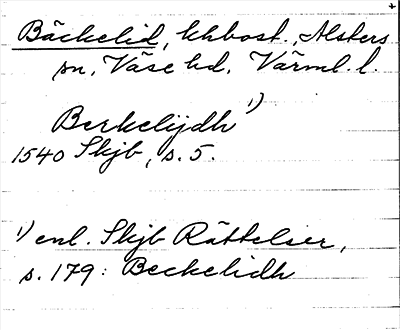 Bäckelid, khbost., Alsters
sn, Väse hd, Värml. l.
Berkelijdh 1)
1540 Skjb, s. 5.
1) enl. Skjb Rättelser,
s. 179: Beckelidh